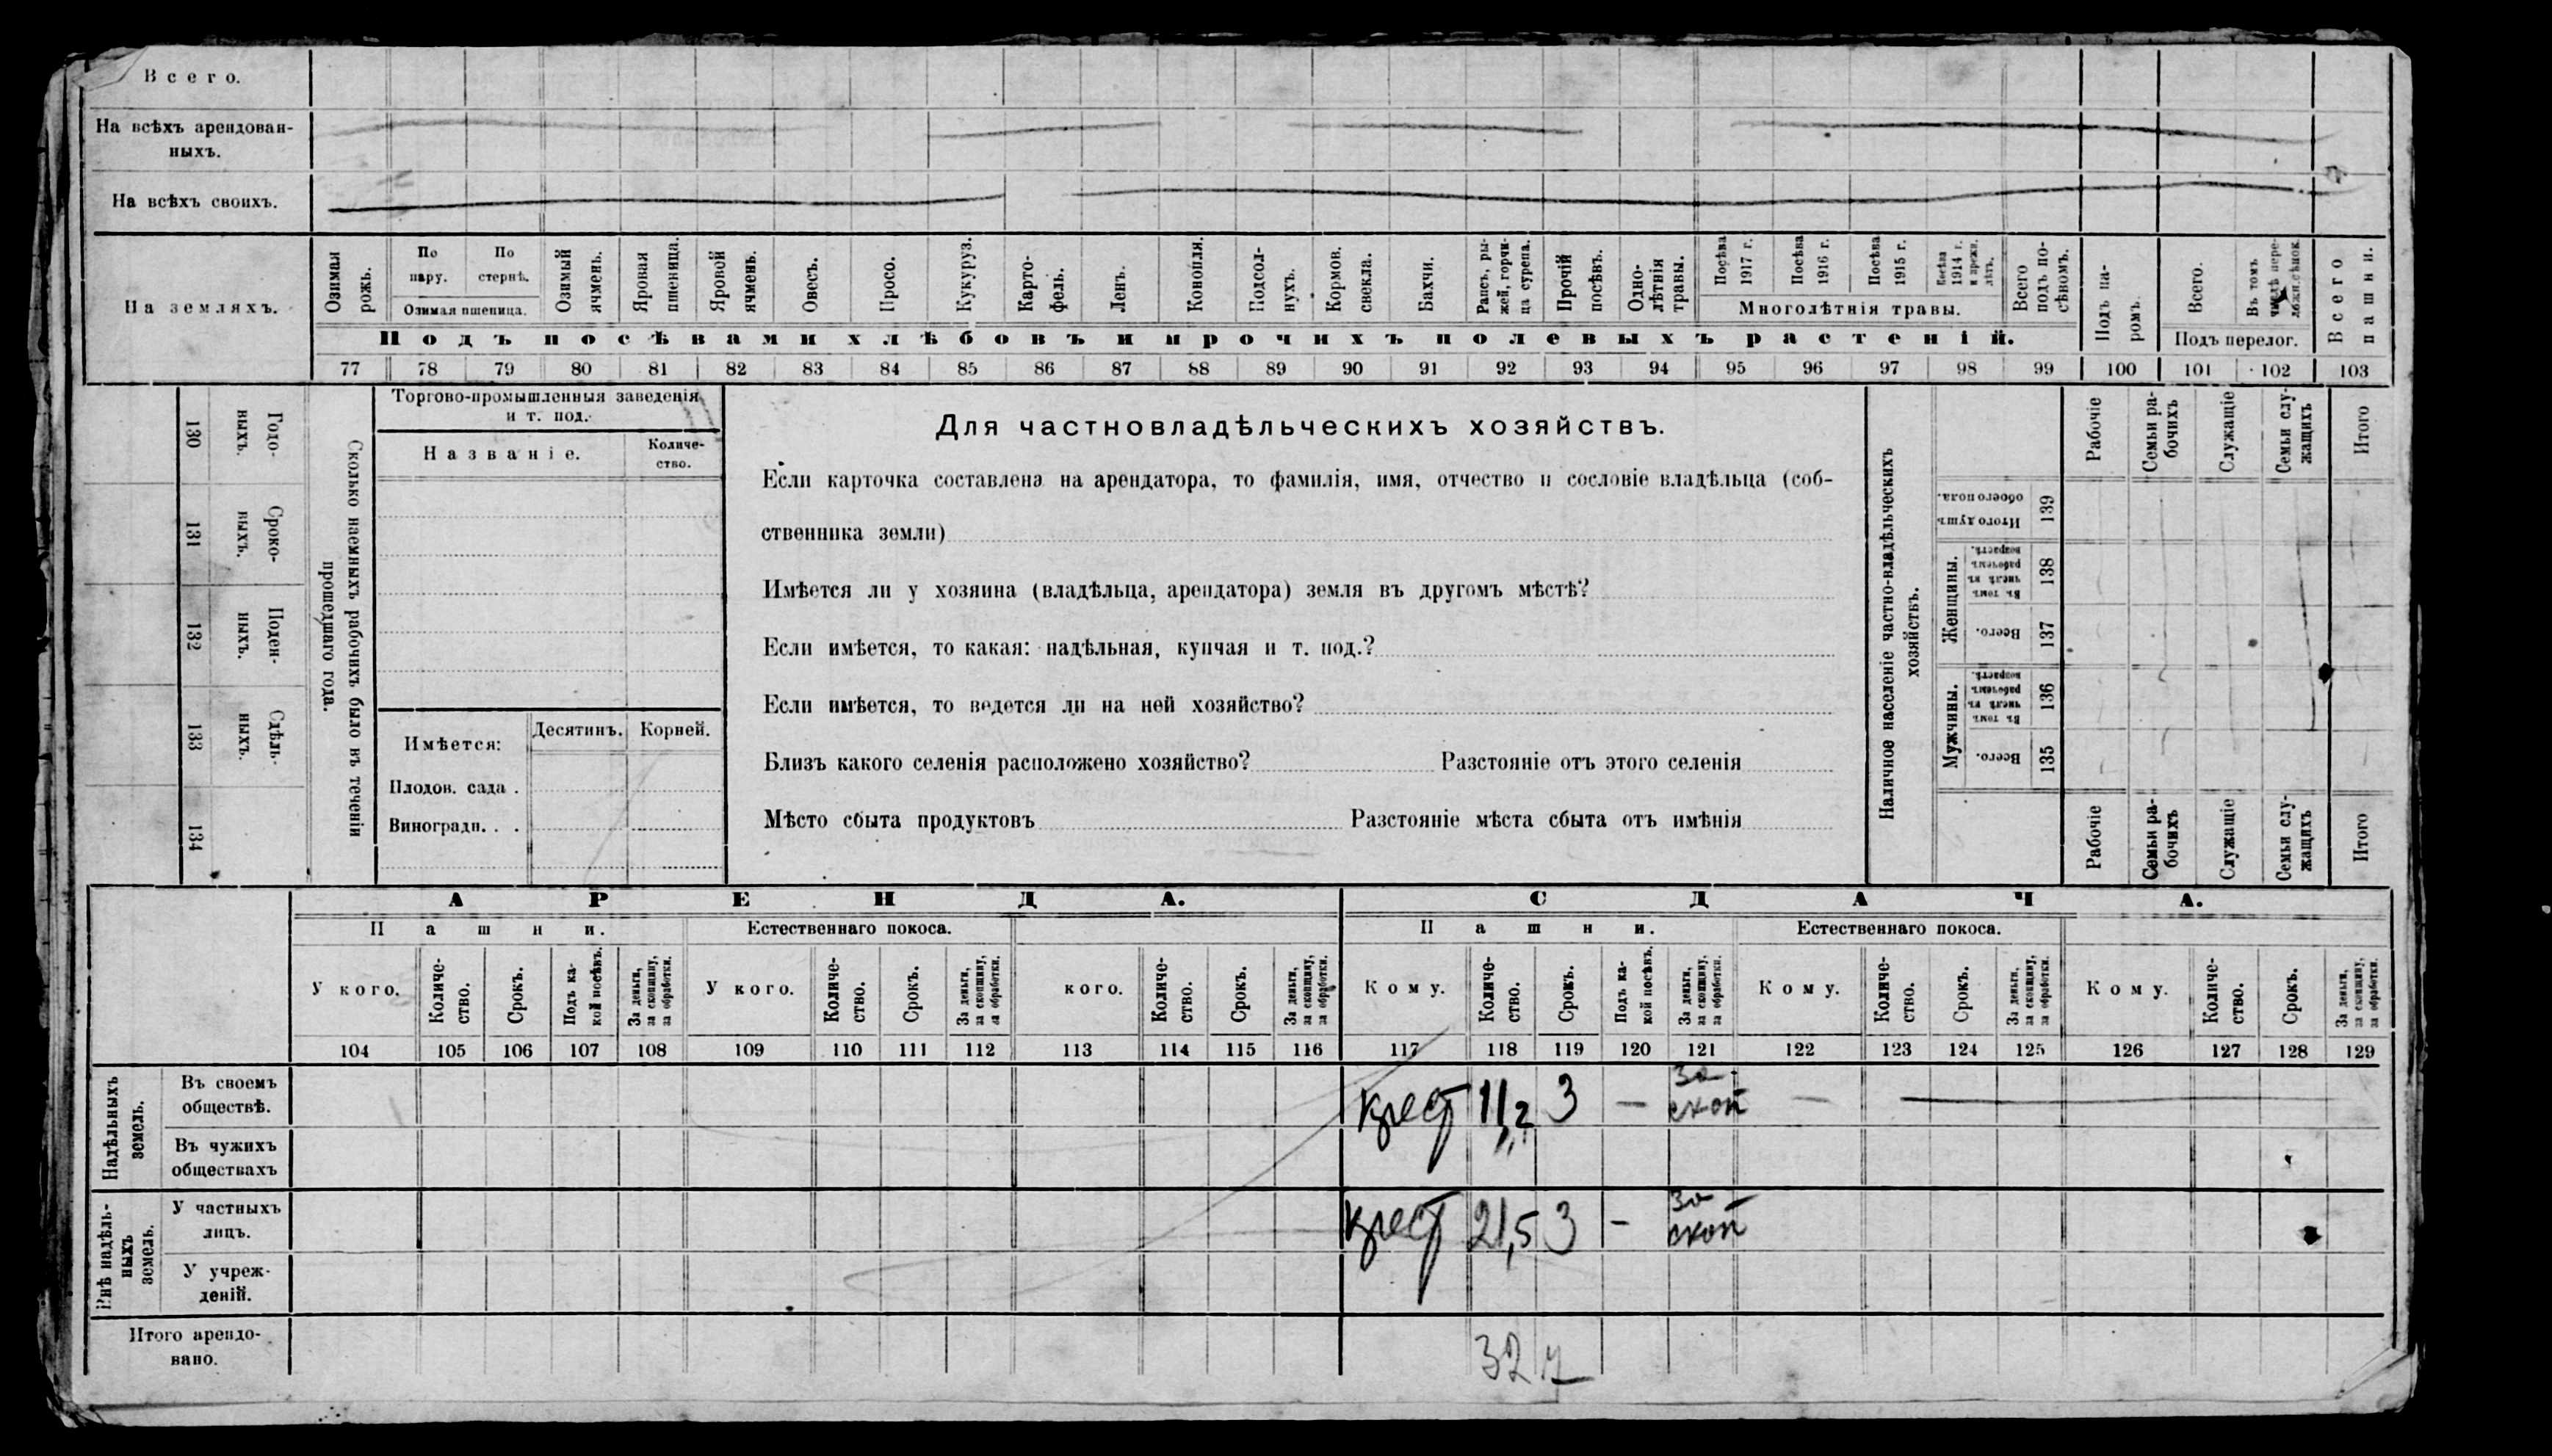 Всего.
На всѣхъ арендован-
ныхъ.
На всѣхъ своихъ.
На земляхъ.
Озимая рожь.
По пару.
По стернѣ.
Озимая пшеница.
Озимый ячмень.
Яровая пшеница.
Яровой ячмень.
Овесъ.
Просо.
Кукуруз.
Карто-
фель.
Ленъ.
Конопля.
Подсол-
нухъ.
Кормов. свекла.
Бахчи.
Рапсъ, ры-
жей, горчи-
ца сурепа.
Прочій посѣвъ.
Одно-
лѣтнія травы.
Посѣва 1917 г.
Посѣва 1916 г.
Посѣва 1915 г.
Посѣва 1914 г. и прежн. лѣтъ.
Многолѣтнія травы.
Всего подъ по-
сѣвомъ.
Подъ посѣвами хлѣбовъ и прочихъ полевыхъ растеній.
Подъ па-
ромъ.
Всего.
Въ томъ числѣ пере-
Подъ перелог.
Всего пашни.
77 78 79 80 81 82 83 84 85 86 87 88 89 90 91 92 93 94 95 96 97 98 99 100 101 102 103
Сколько наемныхъ рабочихъ было въ теченіи
прошедшаго года.
Годо-
выхъ.
130
Сроко-
выхъ.
131
Поден-
ныхъ.
132
Сдѣль-
ныхъ.
133
134
Торгово-промышленныя заведенія
и т. под.
Названіе.
Количе-
ство.
Имѣется:
Десятинъ.
Корней.
Плодов. сада .
Виноградн. . .
Для частновладѣльческихъ хозяйствъ.
Если карточка составлена на арендатора, то фамилія, имя, отчество и сословіе владѣльца (соб-
ственника земли)
Имѣется ли у хозяина (владѣльца, арендатора) земля въ другомъ мѣстѣ?
Если имѣется, то какая: надѣльная, купчая и т. под.?
Если имѣется, то ведется ли на ней хозяйство?
Близъ какого селенія расположено хозяйство? Разстояніе отъ этого селенія
Мѣсто сбыта продуктовъ Разстояніе мѣста сбыта отъ имѣнія
Наличное населеніе частно-владѣльческихъ
хозяйствъ.
Итого душъ обоего пола.
139
Женщины.
Въ томъ числѣ въ рабочемъ возрастѣ.
138
Всего.
137
Мужчины.
Въ томъ числѣ въ рабочемъ возрастѣ.
136
Всего.
135
Рабочіе
Семьи ра-
бочихъ
Служащіе
Семьи слу-
жащихъ
Итого
Рабочіе
Семьи ра-
бочихъ
Служащіе
Семьи слу-
жащихъ
Итого
АРЕНДА.
СДАЧА.
Пашни.
Естественнаго покоса.
Пашни.
Естественнаго покоса.
У кого.
Количе-
ство.
Срокъ.
Подъ ка-
кой посѣвъ.
За деньги,
за скопщину,
за обработки.
У кого.
Количе-
ство.
Срокъ.
За деньги,
за скопщину,
за обработки.
кого.
Количе-
ство.
Срокъ.
За деньги,
за скопщину,
за обработки.
Кому.
Количе-
ство.
Срокъ.
Подъ ка-
кой посѣвъ.
За деньги,
за скопщину,
за обработки.
Кому.
Количе-
ство.
Срокъ.
За деньги,
за скопщину,
за обработки.
Кому.
Количе-
ство.
Срокъ.
За деньги,
за скопщину,
за обработки.
104 105 106 107 108 109 110 111 112 113 114 115 116 117 118 119 120 121 122 123 124 125 126 127 128 129
Надѣльныхъ
земель.
Въ своемъ
обществѣ.
крест 11,2 3 — за скоп —
Въ чужихъ
обществахъ
Внѣ надѣль-
ныхъ
земель.
У частныхъ
лицъ.
крест 21,5 3 - за скоп
У учреж-
деній.
Итого арендо-
вано.
32 7